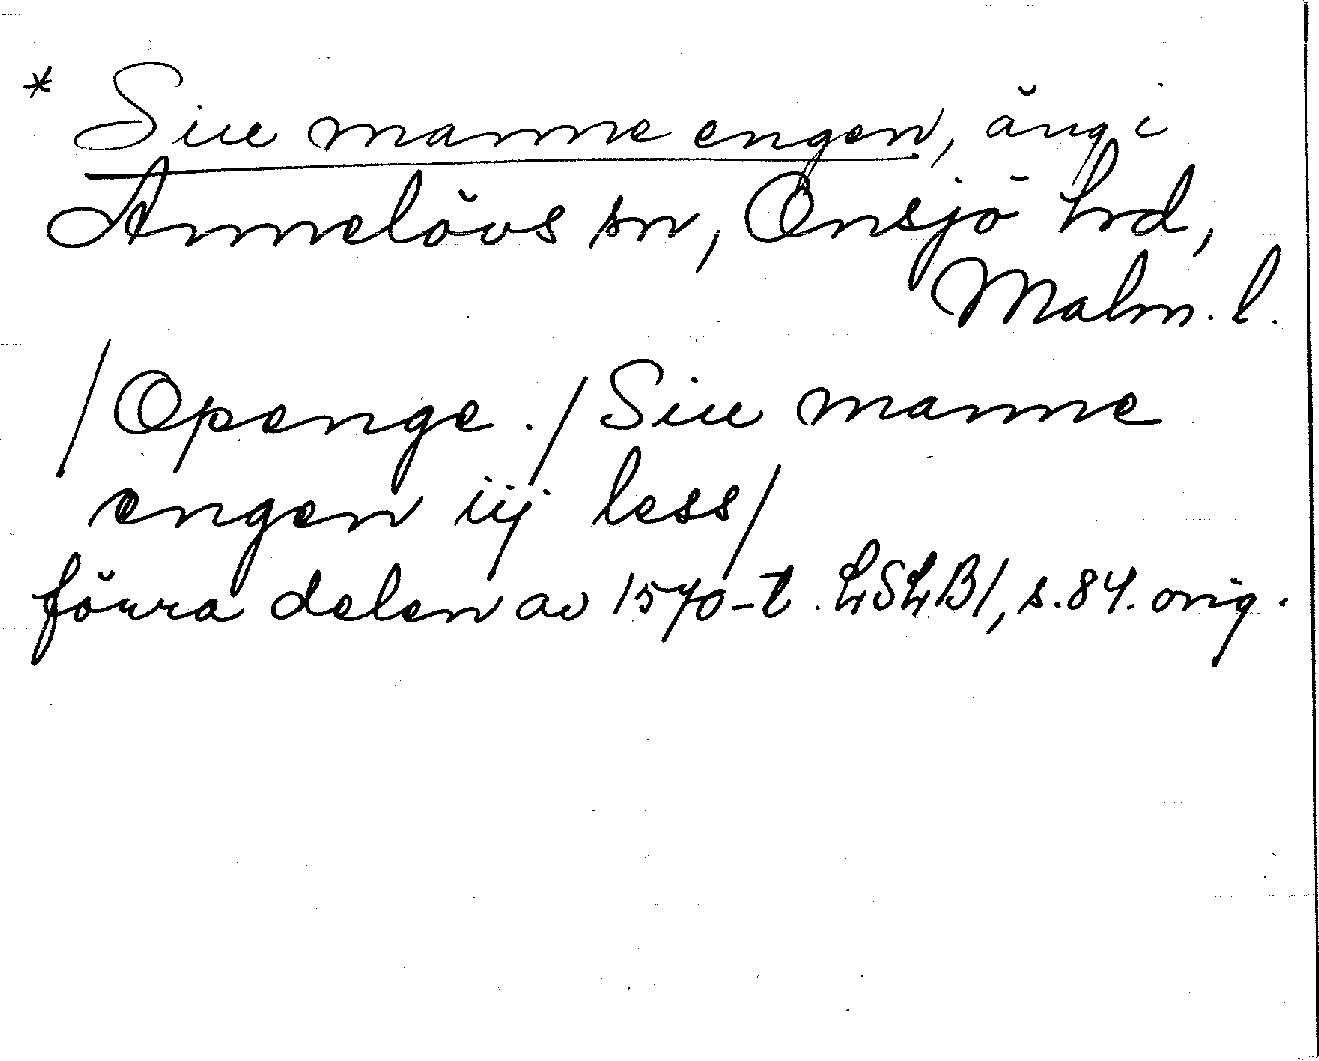 * Siu manne engen, äng i
Annelövs sn, Onsjö hrd,
Malm. l.
/Openge./Siu manne
engen iij less/
förra delen av 1570-t. LSLB1, s. 84. orig.